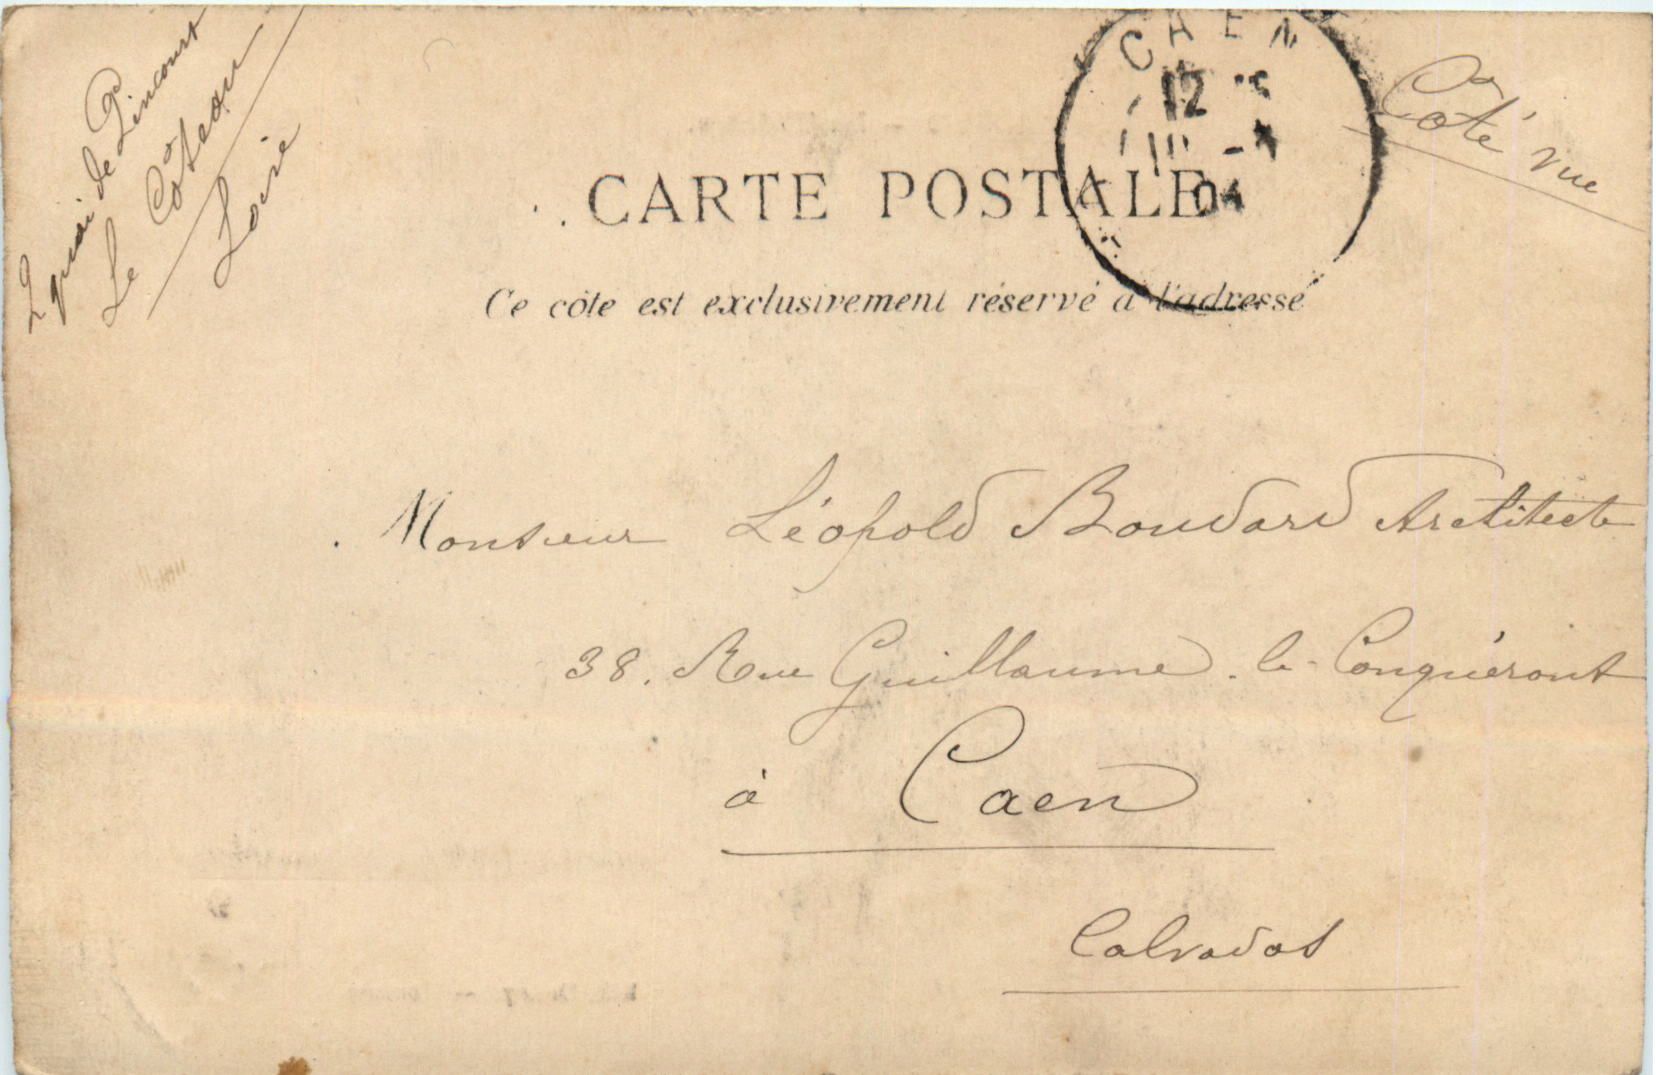 2 quai de
Le Côteau
Loire
CAEN
12
04
Coté vue
CARTE POSTALE
Ce côté est exclusivement réservé à l'adresse
Monsieur Léopold Boudard Architecte
38. Rue Guillaume. le. Conquérant
à Caen
Calvados